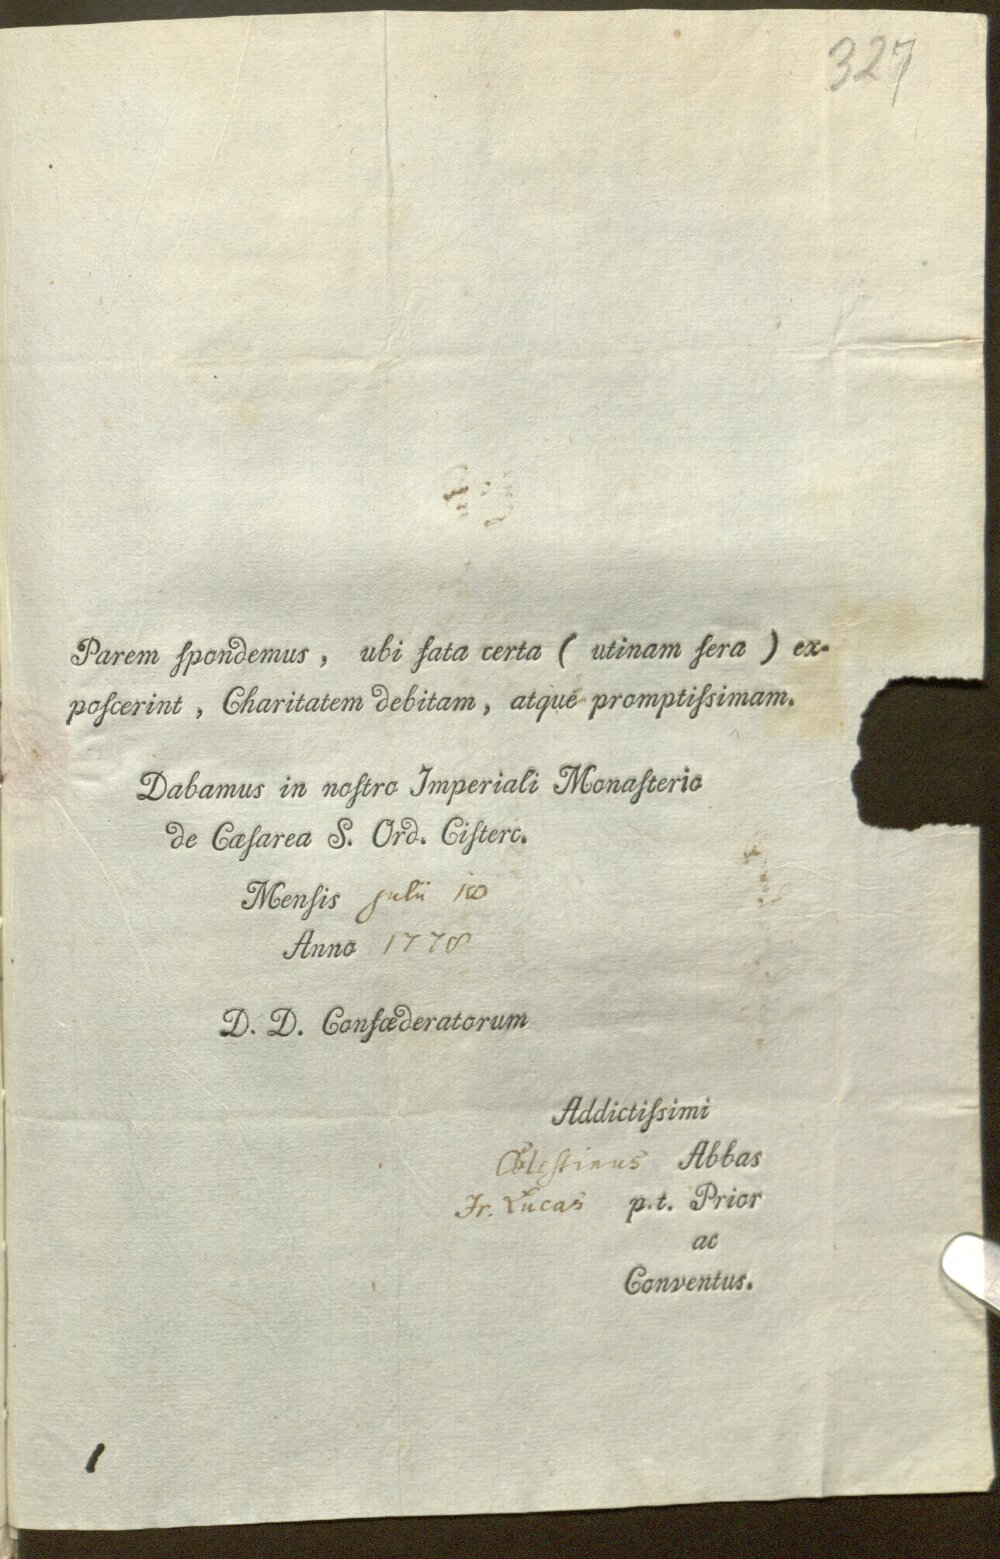 327
Parem ſpondemus, ubi fata certa ( utinam ſera ) ex-
poſcerint, Charitatem debitam, atque promptiſsimam.
Dabamus in noſtro Imperiali Monaſterio
de Cæſarea S. Ord. Ciſterc.
Menſis Julii
Anno 1778
D. D. Confœderatorum
Addictiſsimi
Cœleſtinus Abbas
Fr. Lucas p.t. Prior
ac
Conventus.